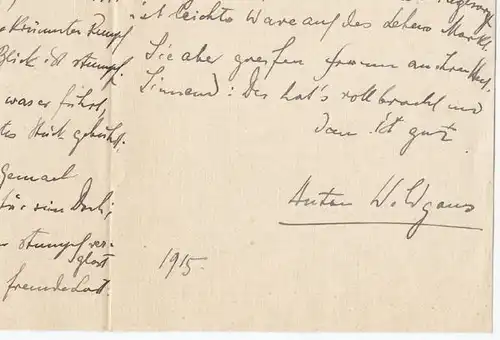 krümmter Rumpf
Blick ist stumpf.
was er führt,
Stück gebührt.
Gemach
für ein Dach,
stumpf ver-
glast
ist leichte Ware auf des Lebens Markt.
Sie aber greifen fromm an ihren
Sinnend: Der hat's vollbracht und
dann ist gut
Anton Wildgans
1915.